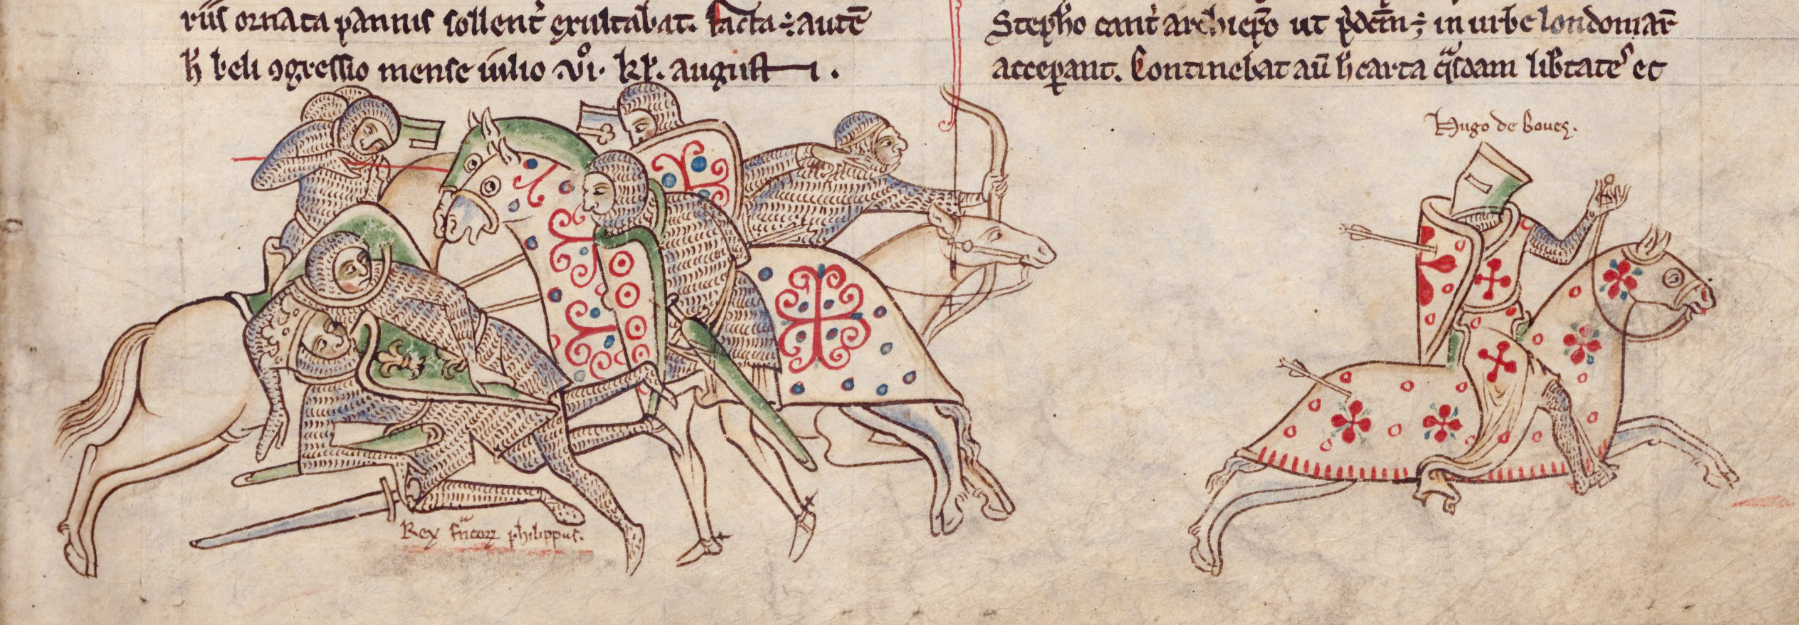 riis ornata pannis sollenť exultabat. facta ÷ autē
ħ beli ꝯgressio mense iulio viͦ. kł. augusti.
Stepħo canť archiep̄o ut p̄dc̄m ÷ in urbe londoniaꝝ
acceperant. Continebat aū ħ carta qͣsdam libtates ec
Hugo de boues.
Rex fͣncoꝝ philippus.